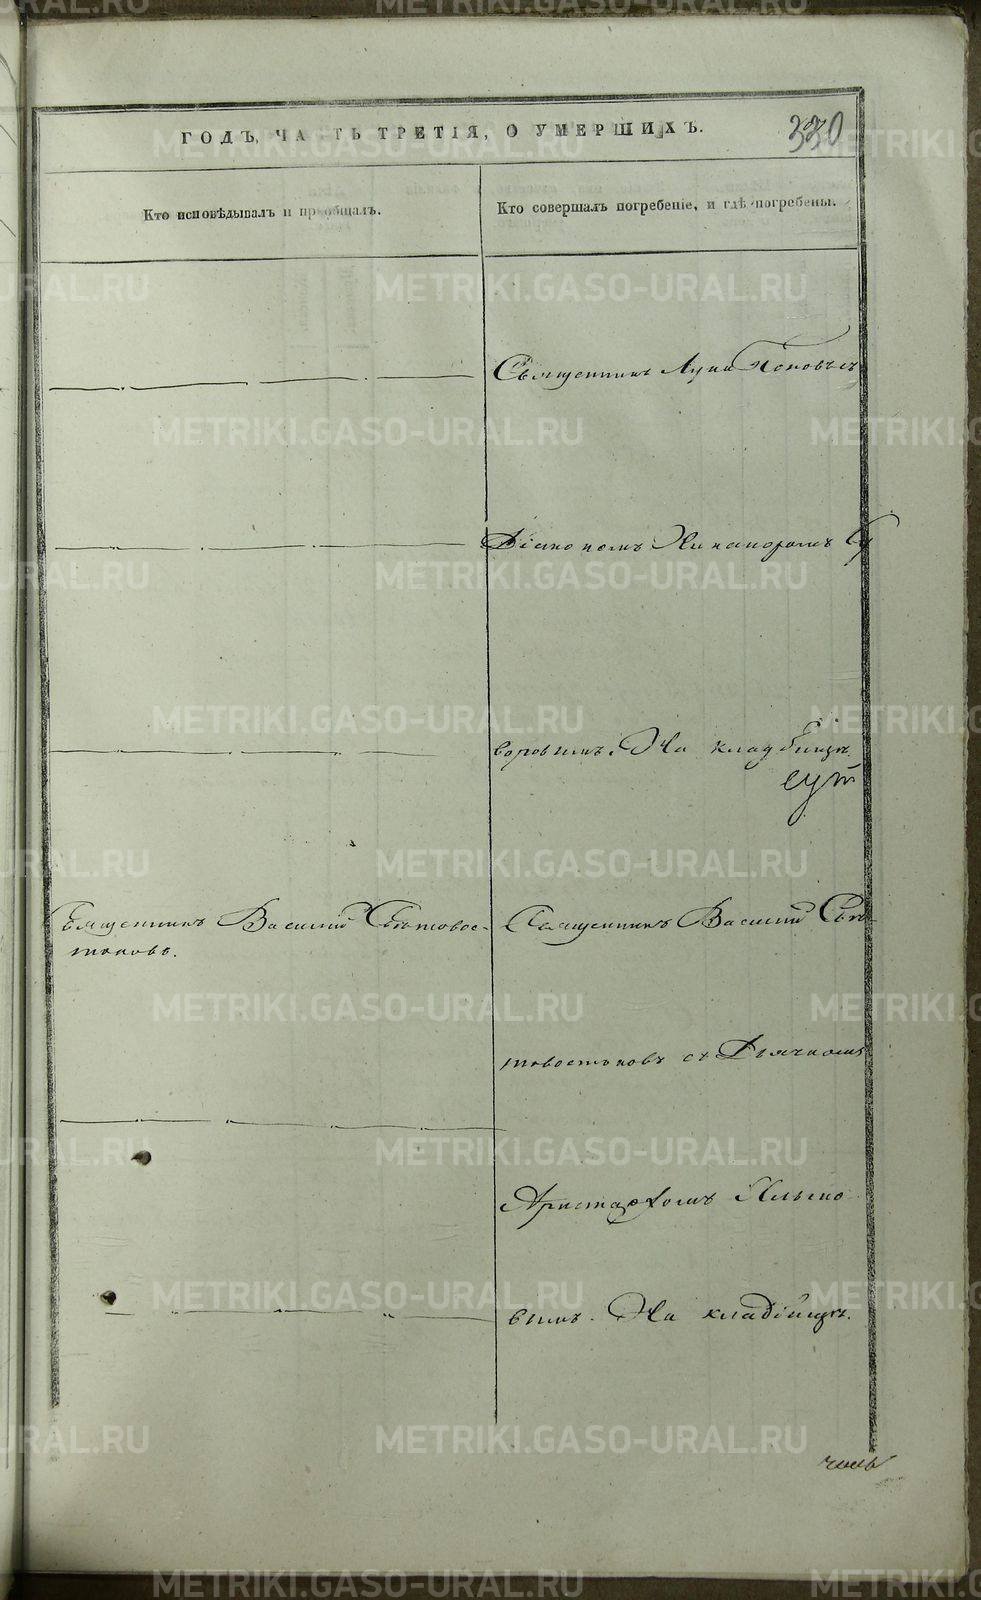 ГОДЪ, ЧАСТЬ ТРЕТІЯ, О УМЕРШИХЪ.
330
Кто исповѣдывалъ и пріобщалъ.
Кто совершалъ погребеніе, и гдѣ погребены.
Священникъ Лука Поповъ съ
Діакономъ Никаноромъ Су
воровымъ. На кладбищѣ
Священникъ Василій Свѣтовос-
токовъ.
Священникъ Василій Свѣ
товостоковъ съ Дьячкомъ
Аристархомъ Ильино
вымъ. На кладбищѣ.
METRIKI.GASO-URAL.RU